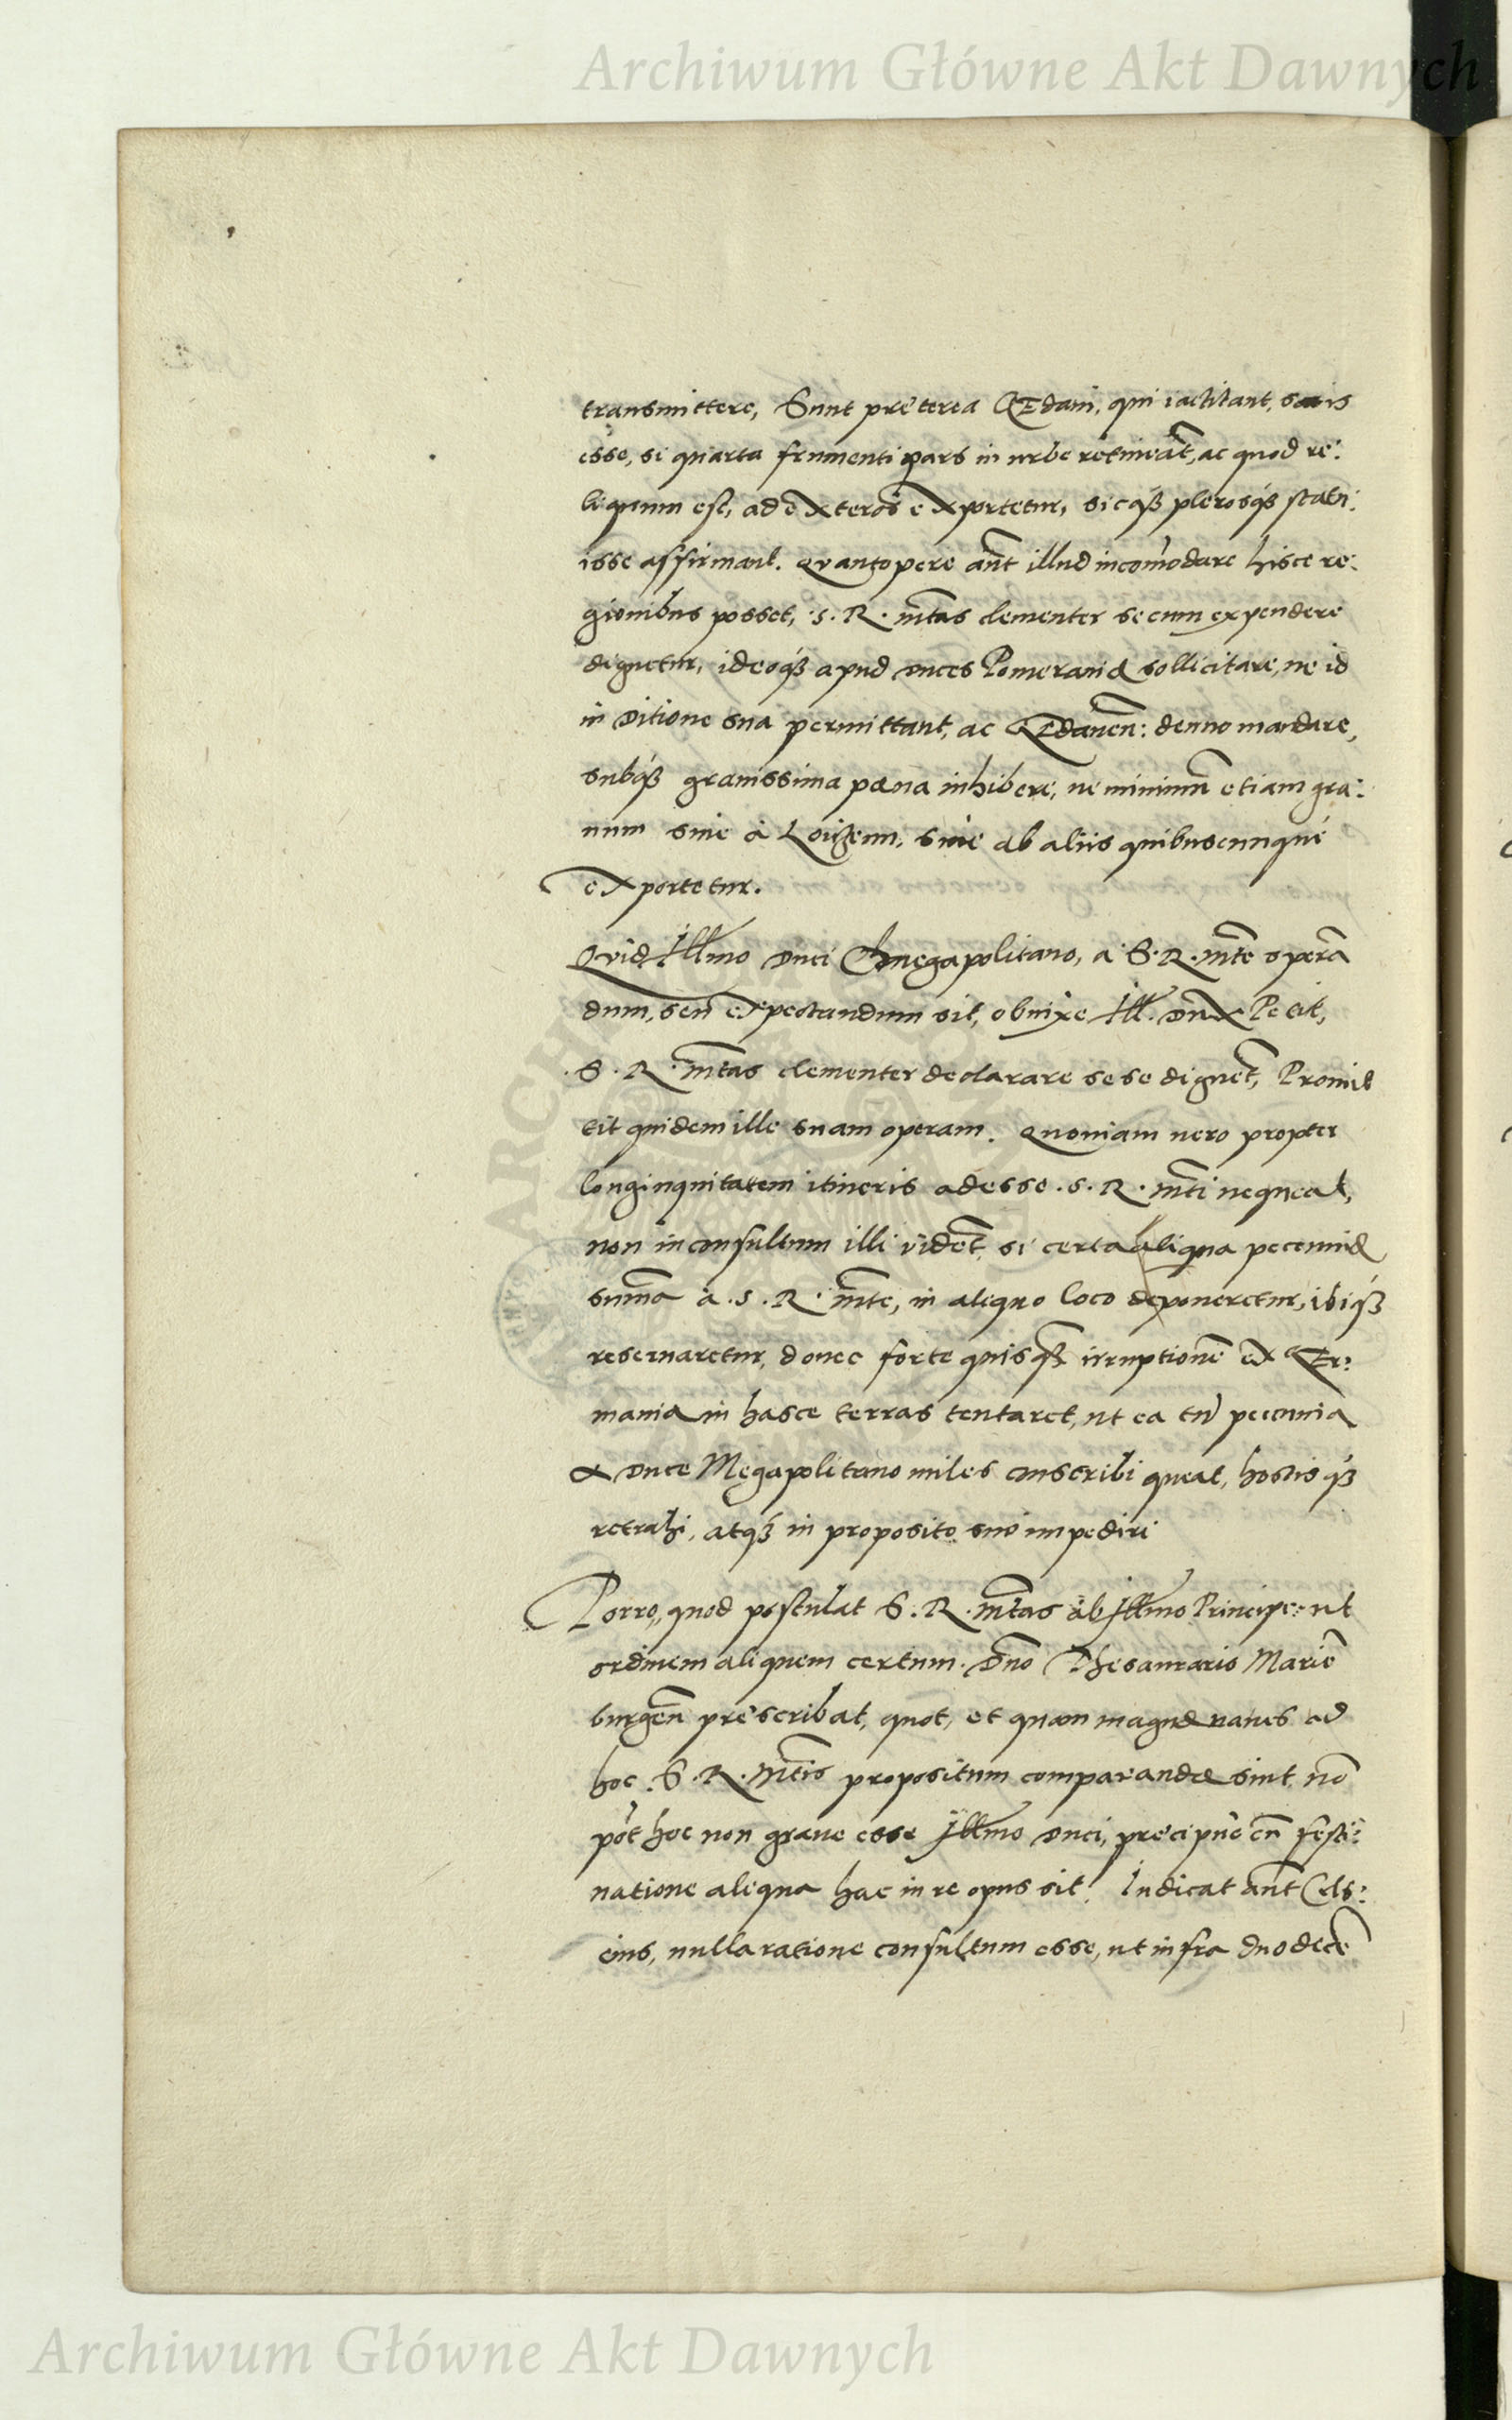 Archiwum Główne Akt Dawnych
transmittere, Sunt pręterea Gedani, qui iactitant, satis
esse, si quarta frumenti pars in urbe retineat̃, ac quod re:
liquum est, ad exteros exportetur, sicq́ꝫ plerosq́ꝫ statu:
isse affirmant. Quantopere aũt illud incom̃odare hisce re:
gionibus posset, S. R. Mtas clementer secum expendere
dignetur, ideoq́ꝫ apud Duces Pomeraniæ sollicitare, ne id
in Ditione sua permittant, ac Gedanen̄: denuo mandare,
subq́ꝫ grauissima pœna inhibere, ne minimũ etiam gra:
num siue à Loitzeun, siue ab aliis quibuscunque
exportetur.
Quid Illmo Duci Megapolitano, a S. R. Mte sperã
dum, seu expectandum sit, obnixe Ill. Dux Petit,
S. R. Mtas clementer declarare sese dignet̃, Promit
tit quidem ille suam operam. Quoniam uero propter
longinquitatem itineris adesse S. R. Mti nequeat,
non inconsultum illi videt̃, si certa aliqua pecuniæ
sum̃a à S. R. Mte, in aliquo loco deponeretur, ibiq́ꝫ
reseruaretur, donec forte quisq̃ꝫ irruptionẽ ex Ger:
mania in hasce terras tentaret, ut ea tũ pecunia
a Duce Megapolitano miles conscribi queat, hostisq́ꝫ
retrahi, atq́ꝫ in proposito suo impediri
Porro, quod postulat S. R. Mtas ab Illmo Principe: ut
ordinem aliquem certum Dño Thesaurario Mariẽ
burgeñ pręscribat, quot, et quam magnæ naues ad
hoc S. R. Mtis propositum comparandæ sint, nõ
põt hoc non graue esse Illmo Duci, pręcipue cũ festi:
natione aliqua hac in re opus sit. Indicat aũt Cels:
eius, nulla ratione consultum esse, ut infra duodecẽ
Archiwum Główne Akt Dawnych